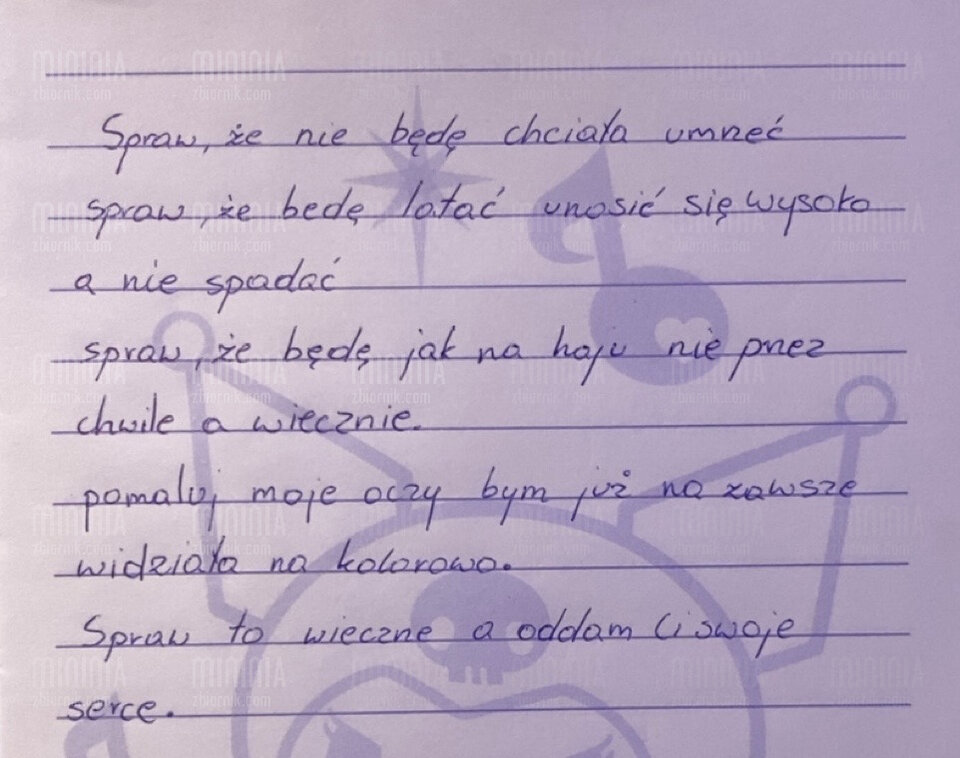 Spraw, że nie będę chciała umrzeć
spraw, że bedę latać unosić się wysoko
a nie spadać
spraw, że będę jak na haju nie przez
chwile a wiecznie.
pomaluj moje oczy bym już na zawsze
widziała na kolorowo.
Spraw to wieczne a oddam Ci swoje
serce.